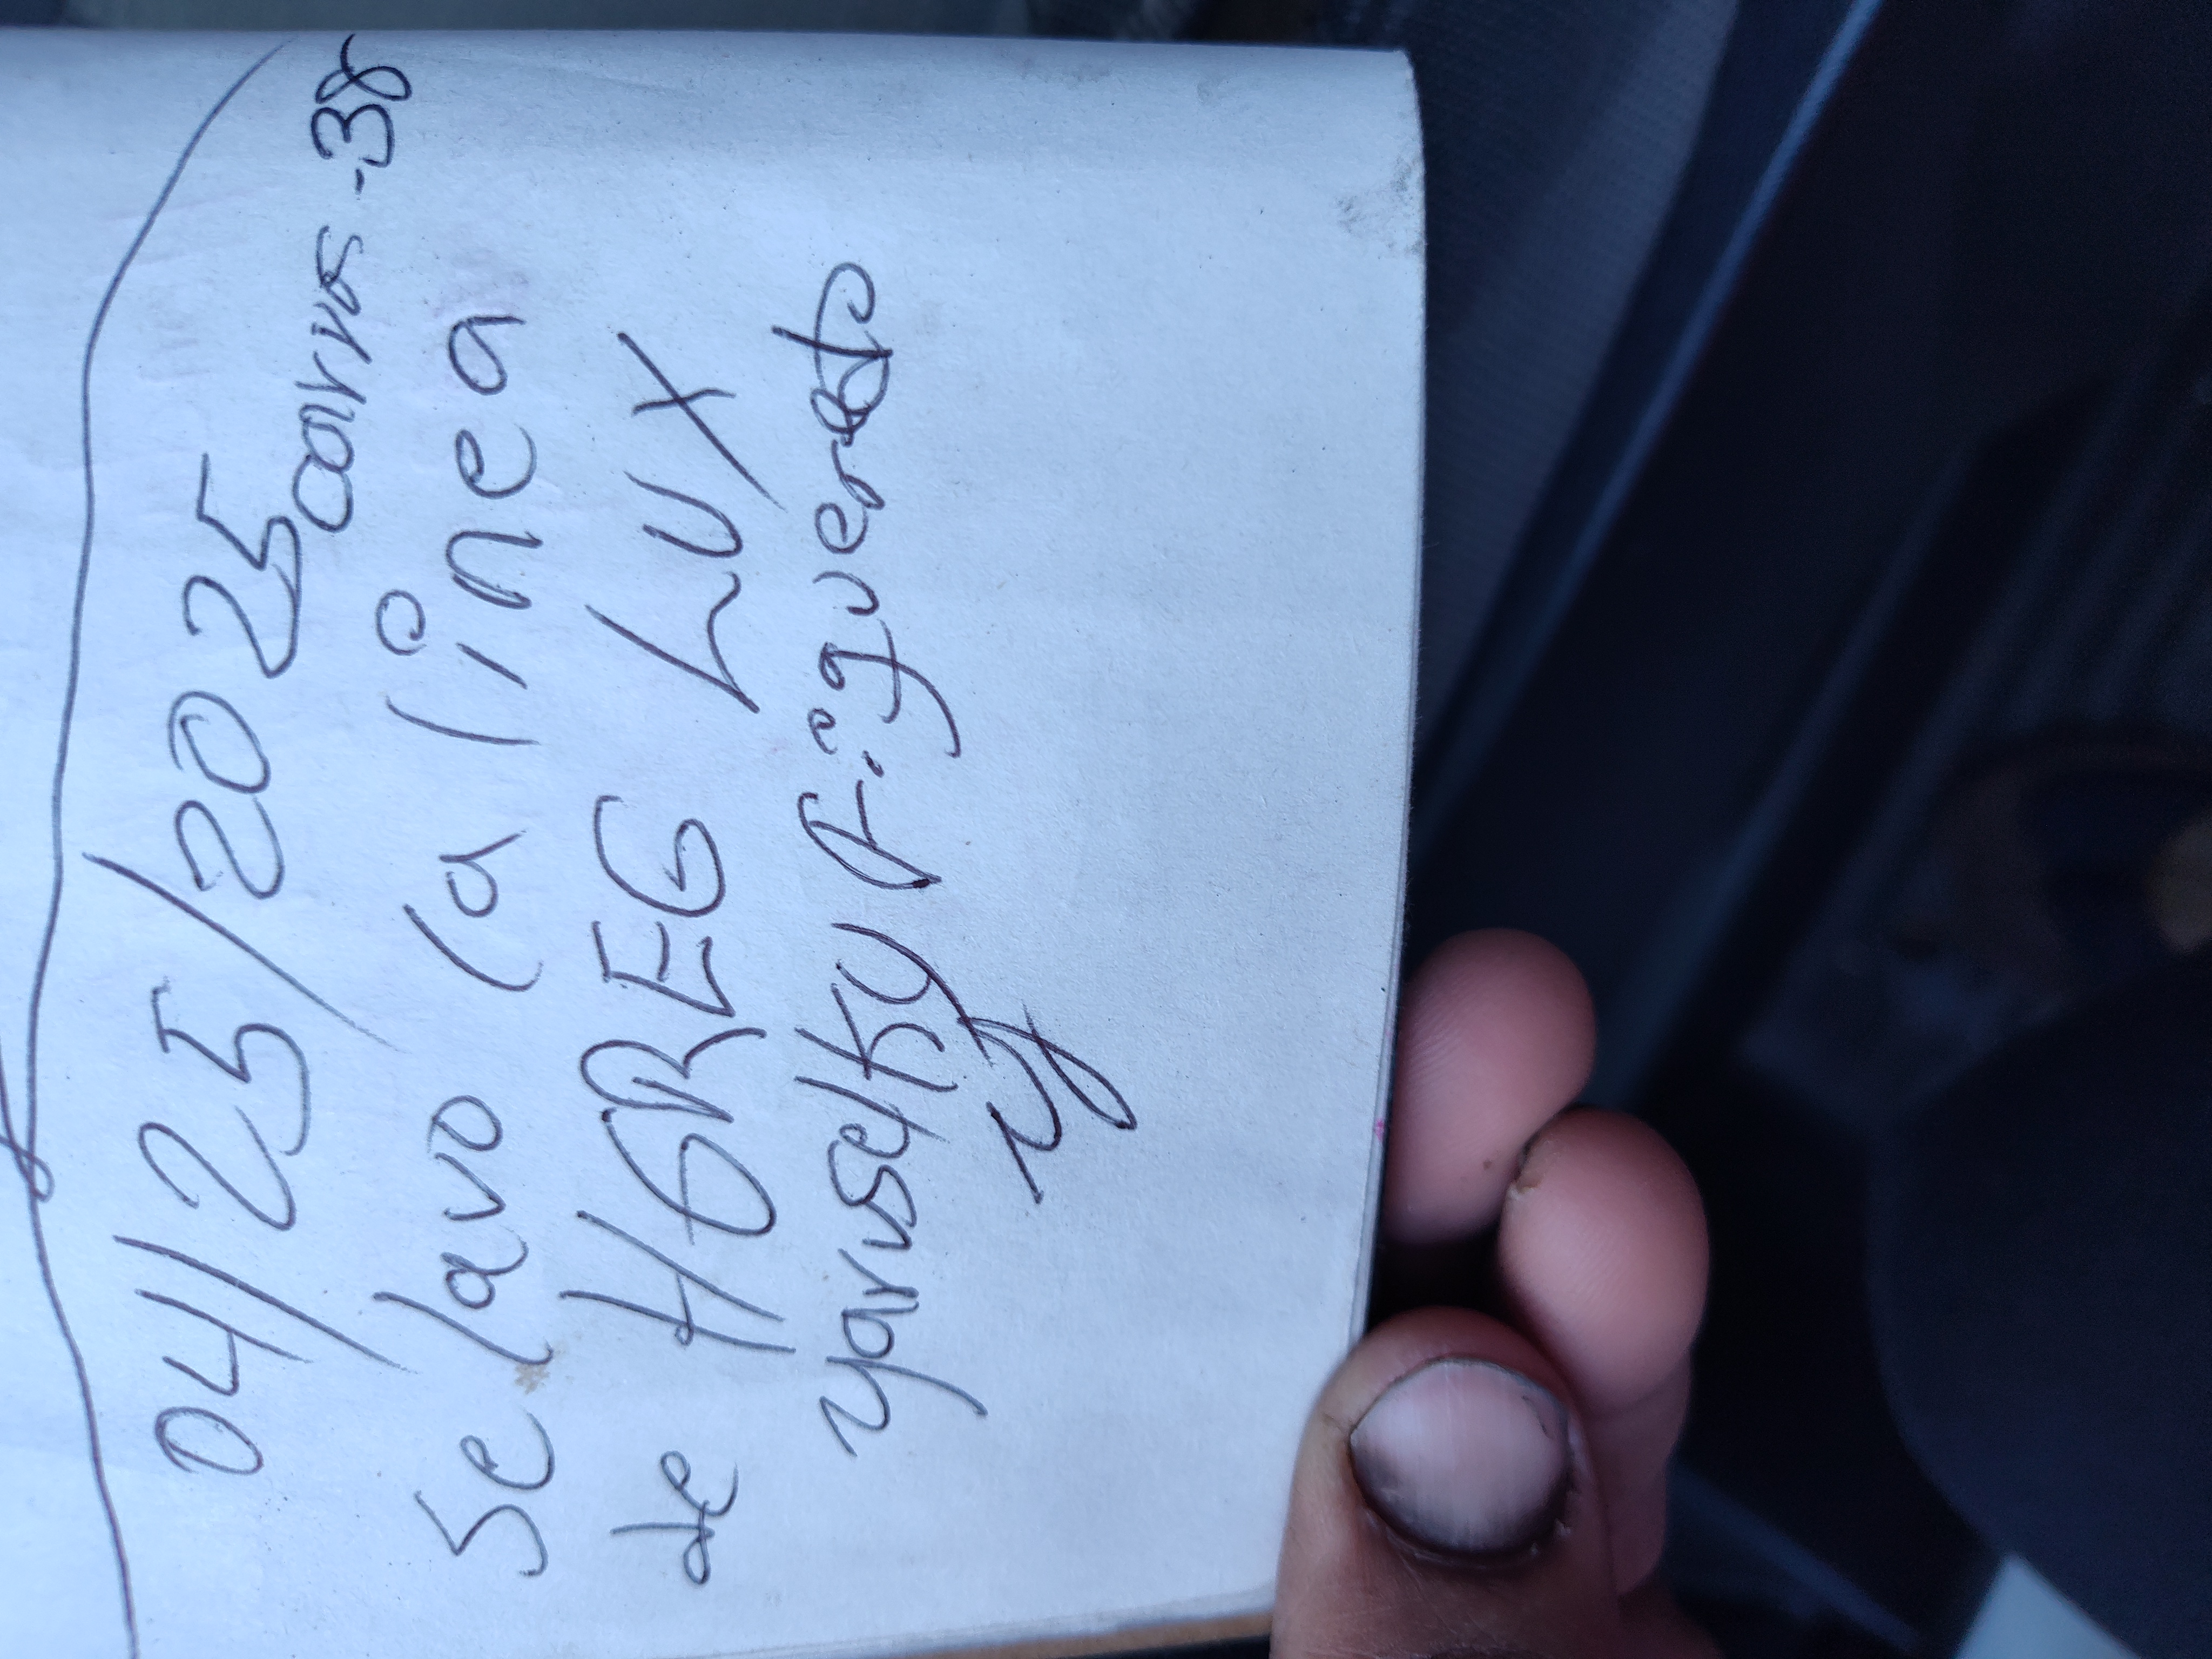 04/25/2025
carrus -38
Se lavo la linea
de HGREG LUX
yaruselky Figueredo